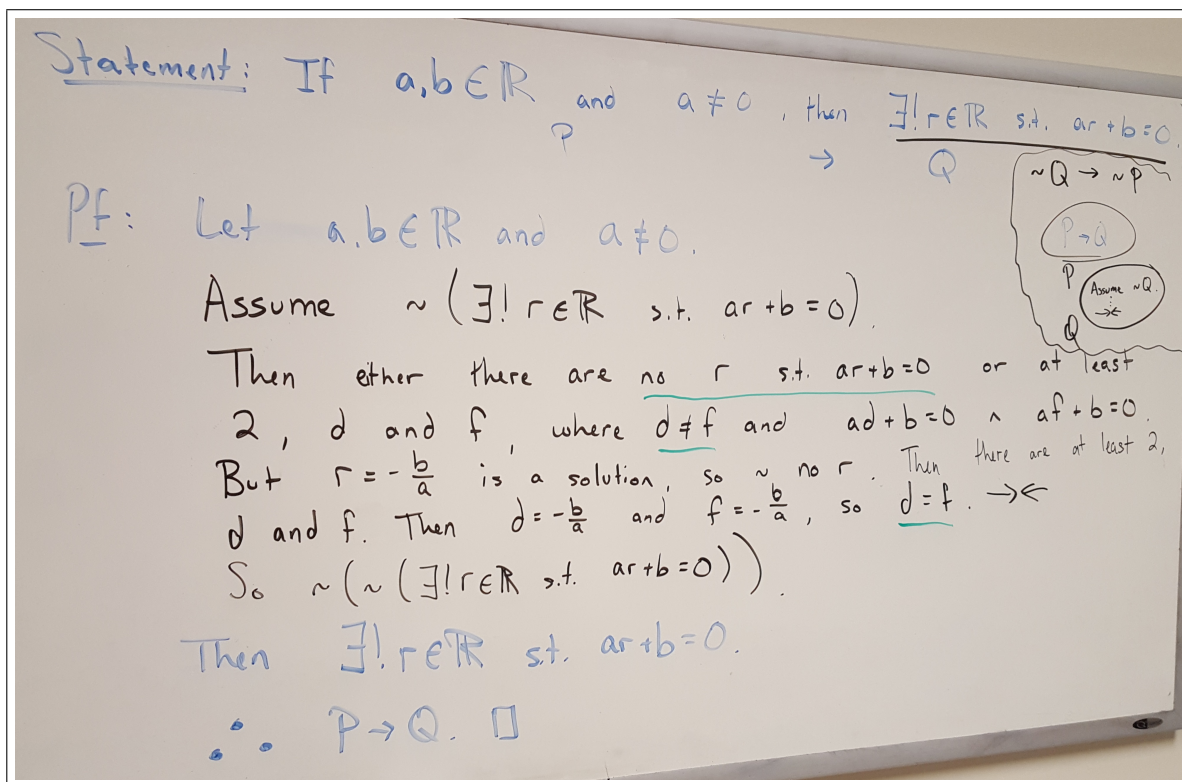 Statement: If a,b ∈ ℝ and a ≠ 0, then ∃! r ∈ ℝ s.t. ar + b = 0.
P → Q
~Q → ~P
P → Q
P
Assume ~Q.
⋮
→←
Q
Pf: Let a,b ∈ ℝ and a ≠ 0.
Assume ~(∃! r ∈ ℝ s.t. ar + b = 0).
Then either there are no r s.t. ar + b = 0 or at least
2, d and f, where d ≠ f and ad + b = 0 ∧ af + b = 0.
But r = -b/a is a solution, so ~ no r. Then there are at least 2,
d and f. Then d = -b/a and f = -b/a, so d = f. →←
So ~(~(∃! r ∈ ℝ s.t. ar + b = 0)).
Then ∃! r ∈ ℝ s.t. ar + b = 0.
∴ P → Q. □